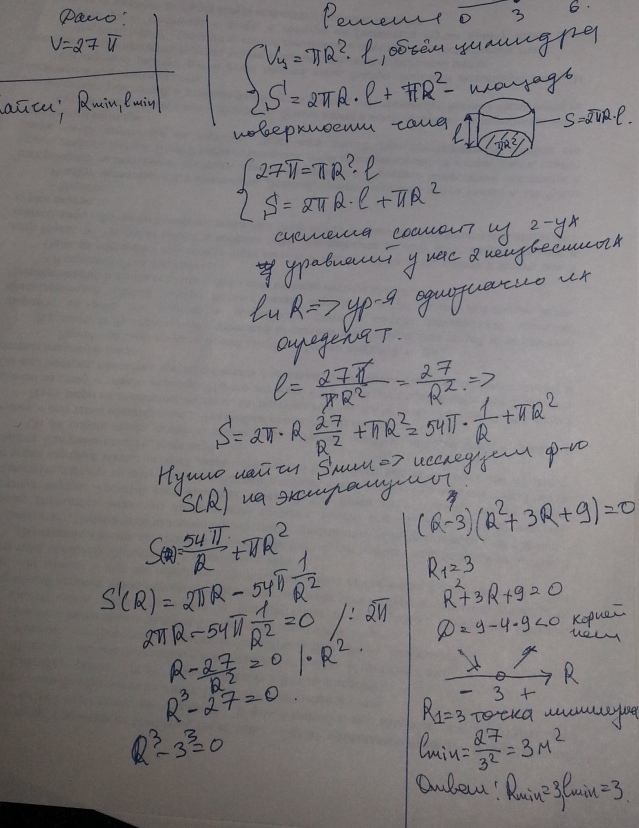 Дано:
V=27π
найти; Rmin, lmin
Решение 0 3 6.
Vц = πR²·l, объём цилиндра
S = 2πR·l + πR² - площадь
поверхности чана
l
πR²
S=2πR·l.
27π=πR²·l
S = 2πR·l + πR²
система состоит из 2-ух
уравнений у нас 2 неизвестных
l и R => ур-я однозначно их
определят.
l = 27π/πR² = 27/R² =>
S = 2π·R 27/R² + πR² = 54π·1/R + πR²
Нужно найти Sмин => исследуем ф-ю
S(R) на экстремумы.
S(R)=54π/R + πR²
S'(R) = 2πR - 54π 1/R²
2πR - 54π 1/R² = 0 /: 2π
R - 27/R² = 0 |·R².
R³ - 27 = 0.
R³ - 3³ = 0
(R-3)(R²+3R+9)=0
R₁=3
R²+3R+9=0
D=9-4·9<0 корней
нет
- 3 + R
R₁=3 точка минимума
lmin = 27/3² = 3 м²
Ответ: Rmin=3, lmin=3.